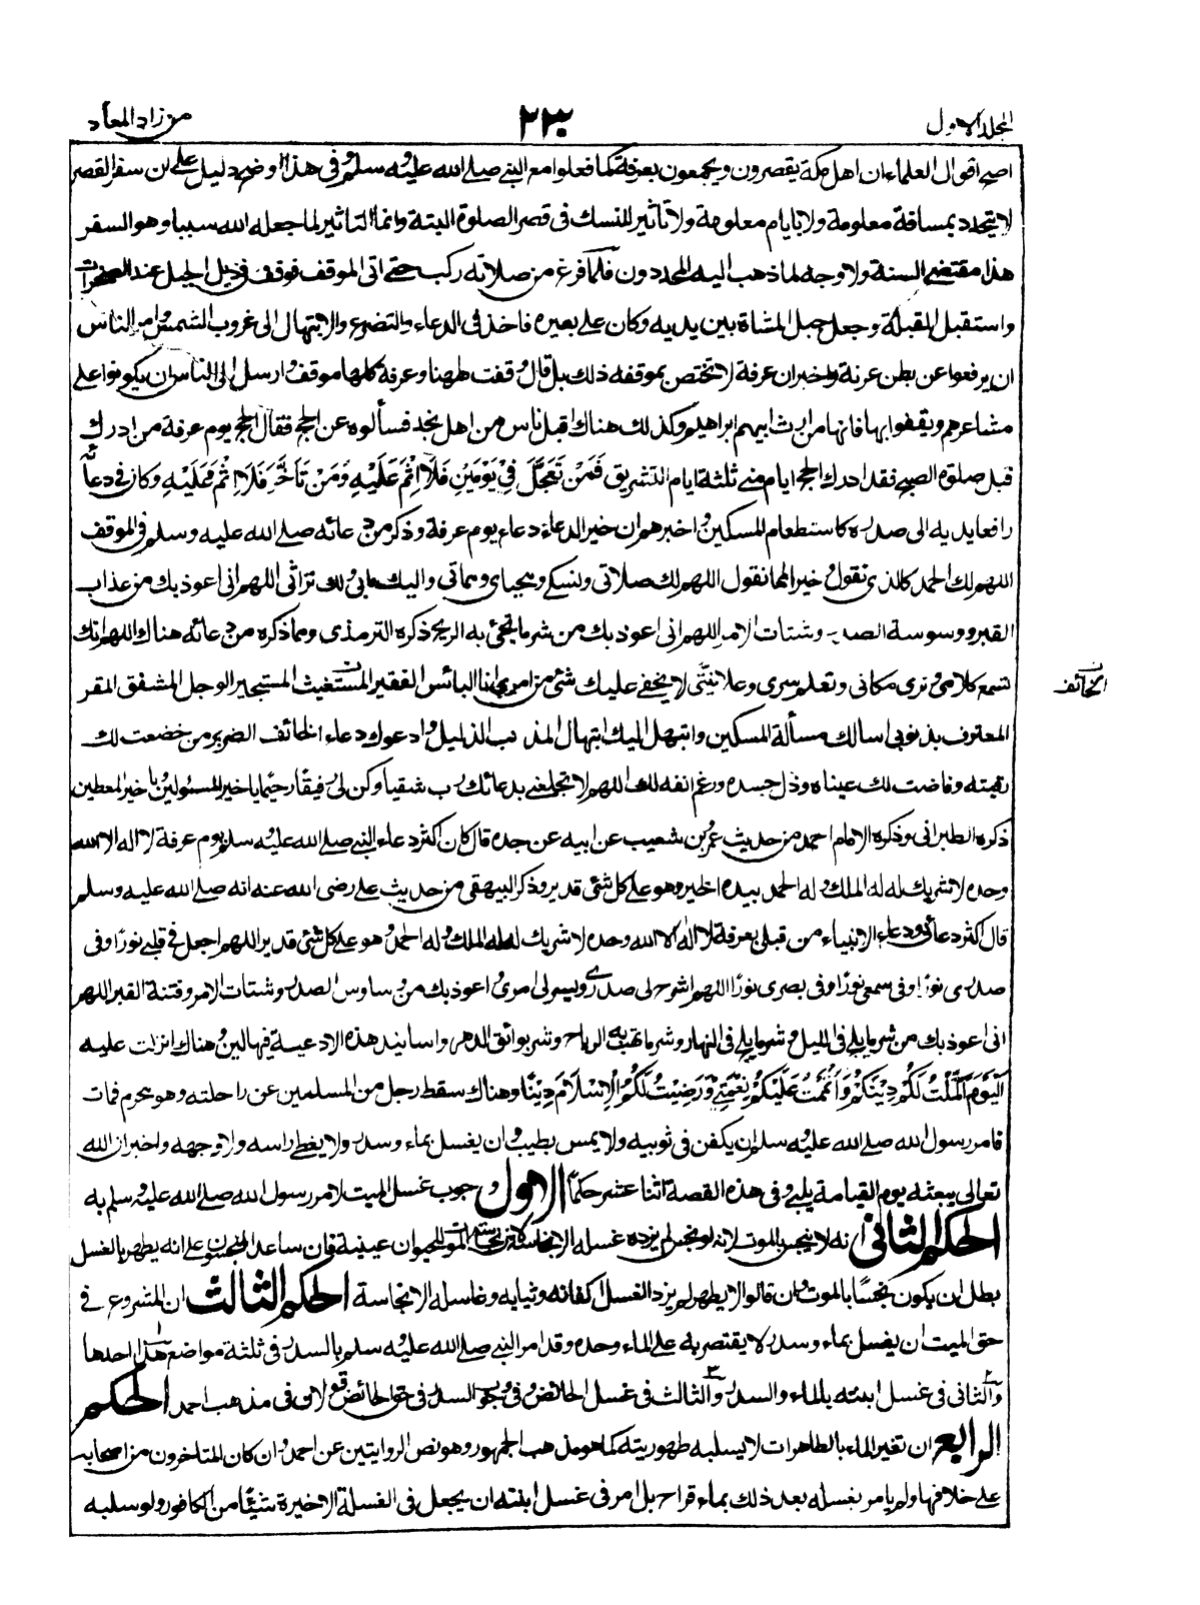 المجلد الاول
٢٣٠
من زاد المعاد
اصح اقوال العلماء ان اهل مكة يقصرون ويجمعون بعرفة كما فعلوا مع النبي صلے الله عليه وسلم وفى هذا اوضح دليل على ان سفر القصر
لا يتحدد بمسافة معلومة ولا بايام معلومة ولا تاثير للنسك فى قصر الصلوة البتة وانما التاثير لما جعله الله سببا وهو السفر
هذا مقتضى السنة ولا وجه لما ذهب اليه المحددون فلما فرغ من صلاته ركب حتے اتى الموقف فوقف فى ذيل الجبل عند الصخرات
واستقبل القبلة وجعل حبل المشاة بين يديه وكان على بعيره فاخذ فى الدعاء والتضرع والابتهال الى غروب الشمس وامر الناس
ان يرفعوا عن بطن عرنة واخبر ان عرفة لا تختص بموقفه ذلك بل قال وقفت ههنا وعرفة كلها موقف وارسل الى الناس ان يكونوا على
مشاعرهم ويقفوا بها فانها من ارث ابيهم ابراهيم وكذلك هناك اقبل ناس من اهل نجد فسألوه عن الحج فقال الحج يوم عرفة من ادرك
قبل صلوة الصبح فقد ادرك الحج ايام منى ثلثة ايام التشريق فَمَنْ تَعَجَّلَ فِيْ يَوْمَيْنِ فَلَا اِثْمَ عَلَيْهِ وَمَنْ تَاَخَّرَ فَلَا اِثْمَ عَلَيْهِ وكان فى دعائه
رافعا يديه الى صدره كاستطعام المسكين واخبرهم ان خير الدعاء دعاء يوم عرفة وذكر من دعائه صلے الله عليه وسلم فى الموقف
اللهم لك الحمد كالذى نقول وخيرا مما نقول اللهم لك صلاتى ونسكى ومحياى ومماتى واليك مابى ولك تراثى اللهم انى اعوذ بك من عذاب
القبر ووسوسة الصدر وشتات الامر اللهم انى اعوذ بك من شر ما تجئ به الريح ذكره الترمذى ومما ذكره من دعائه هناك اللهم انك
تسمع كلامى وترى مكانى وتعلم سرى وعلانيتى لا يخفى عليك شئ من امرى انا البائس الفقير المستغيث المستجير الوجل المشفق المقر
الخائف
المعترف بذنوبى اسالك مسألة المسكين وابتهل اليك ابتهال المذنب الذليل وادعوك دعاء الخائف الضرير من خضعت لك
رقبته وفاضت لك عيناه وذل جسده ورغم انفه لك اللهم لا تجعلنى بدعائك رب شقيا وكن لى رفيقا رحيما يا خير المسئولين يا خير المعطين
ذكره الطبرانى وذكره الامام احمد من حديث عمرو بن شعيب عن ابيه عن جده قال كان اكثر دعاء النبى صلے الله عليه وسلم يوم عرفة لا اله الا الله
وحده لا شريك له له الملك وله الحمد بيده الخير وهو على كل شئ قدير وذكر البيهقى من حديث على رضى الله عنه انه صلے الله عليه وسلم
قال اكثر دعائى ودعاء الانبياء من قبلى بعرفة لا اله الا الله وحده لا شريك له له الملك وله الحمد وهو على كل شئ قدير اللهم اجعل فى قلبى نورا وفى
صدرى نورا وفى سمعى نورا وفى بصرى نورا اللهم اشرح لى صدرى ويسر لى امرى واعوذ بك من وساوس الصدر وشتات الامر وفتنة القبر اللهم
انى اعوذ بك من شر ما يلج فى الليل وشر ما يلج فى النهار وشر ما تهب به الرياح وشر بوائق الدهر واسانيد هذه الادعية فيها لين وهناك انزلت عليه
اَلْيَوْمَ اَكْمَلْتُ لَكُمْ دِيْنَكُمْ وَاَتْمَمْتُ عَلَيْكُمْ نِعْمَتِيْ وَرَضِيْتُ لَكُمُ الْاِسْلَامَ دِيْنًا وهناك سقط رجل من المسلمين عن راحلته وهو محرم فمات
فامر رسول الله صلے الله عليه وسلم ان يكفن فى ثوبيه ولا يمس بطيب وان يغسل بماء وسدر ولا يغطى راسه ولا وجهه واخبر ان الله
تعالى يبعثه يوم القيامة يلبى وفى هذه القصة اثنا عشر حكما الاول وجوب غسل الميت لامر رسول الله صلے الله عليه وسلم به
الحكم الثانى انه لا ينجس بالموت لانه لو نجس لم يزده غسله الا نجاسة لان نجاسة الموت للحيوان عينية فان ساعد المنجسون على انه يطهر بالغسل
بطل ان يكون نجسا بالموت وان قالوا لا يطهر لم يزد الغسل اكفانه وثيابه وغاسله الا نجاسة الحكم الثالث ان المشروع فى
حق الميت ان يغسل بماء وسدر لا يقتصر به على الماء وحده وقد امر النبى صلے الله عليه وسلم بالسدر فى ثلثة مواضع هذا احدها
والثانى فى غسل ابنته بالماء والسدر والثالث فى غسل الحائض وفى وجوب السدر فى حق الحائض قولان فى مذهب احمد الحكم
الرابع ان تغير الماء بالطاهرات لا يسلبه طهوريته كما هو مذهب الجمهور وهو نص الروايتين عن احمد وان كان المتاخرون من اصحابه
على خلافها ولم يامر بغسله بعد ذلك بماء قراح بل امر فى غسل ابنته ان يجعل فى الغسلة الاخيرة شيئا من الكافور ولو سلبه